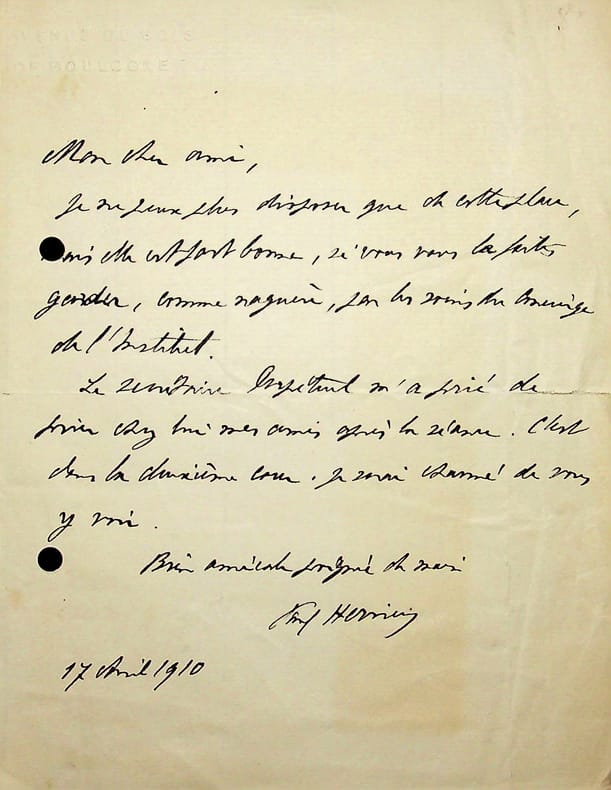 AVENUE DU BOIS
DE BOULOGNE
Mon cher ami,
Je ne peux plus disposer que de cette place,
mais elle est fort bonne, si vous vous la faites
garder, comme naguère, par les soins du concierge
de l'Institut.
Le Secrétaire Perpétuel m'a prié de
prier chez lui mes amis après la séance. C'est
dans la deuxième cour. Je serai charmé de vous
y voir.
Bien amicale poignée de main
Paul Hervieu
17 Avril 1910